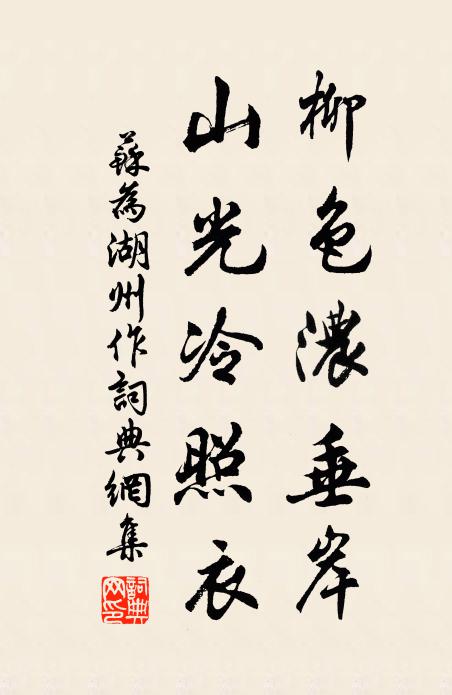 柳色濃垂岸
山光冷照衣
蘇為湖州作詞典網集
詞典網印